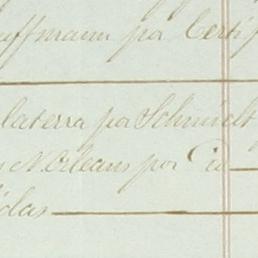 uffmann por Certif
laterra por Schmidt
N. Orleans por Cia
olas